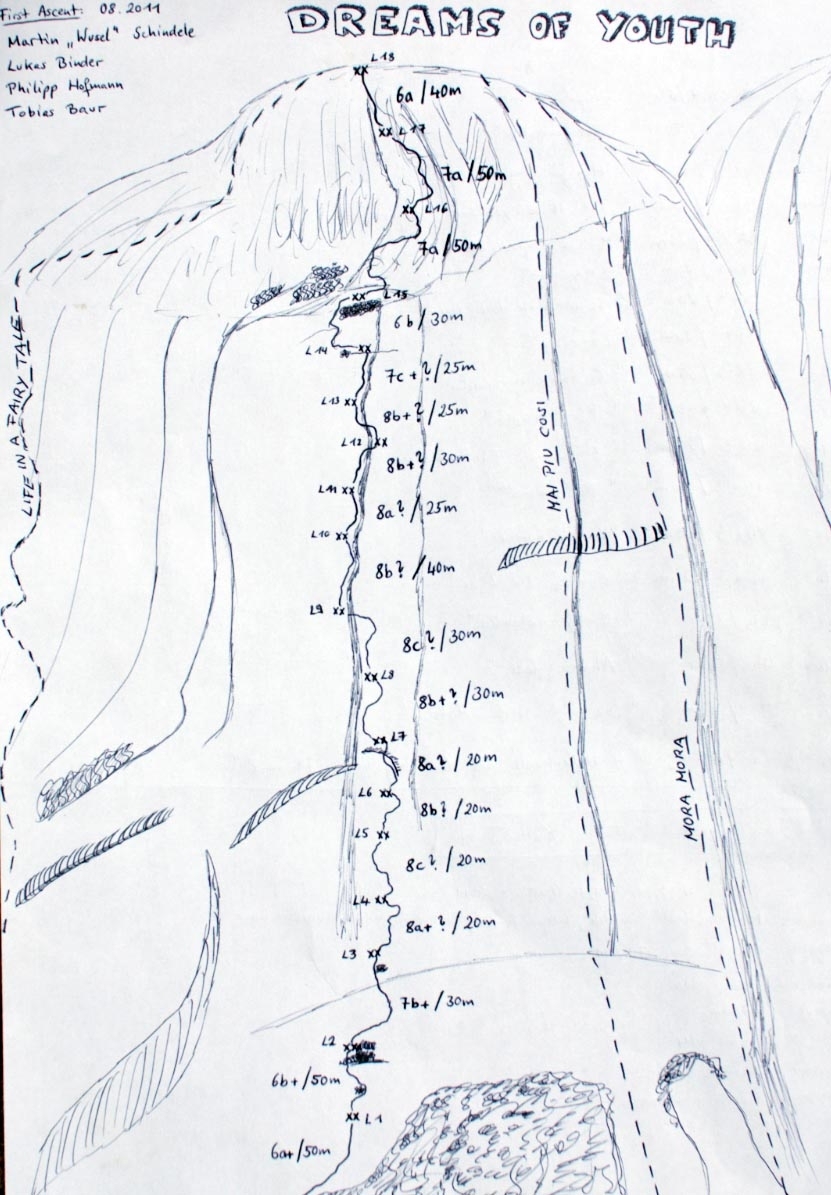 First Ascent: 08.2011
Martin „Wusel" Schindele
Lukas Binder
Philipp Hofmann
Tobias Baur
DREAMS OF YOUTH
L18
6a/40m
L17
7a/50m
L16
7a/50m
L15
6b/30m
L14
7c+?/25m
L13
8b+?/25m
L12
8b+?/30m
L11
8a?/25m
L10
8b?/40m
L9
8c?/30m
L8
8b+?/30m
L7
8a?/20m
L6
8b?/20m
L5
8c?/20m
L4
8a+?/20m
L3
7b+/30m
L2
6b+/50m
L1
6a+/50m
LIFE IN A FAIRY TALE
MAI PIU COSI
MORA MORA